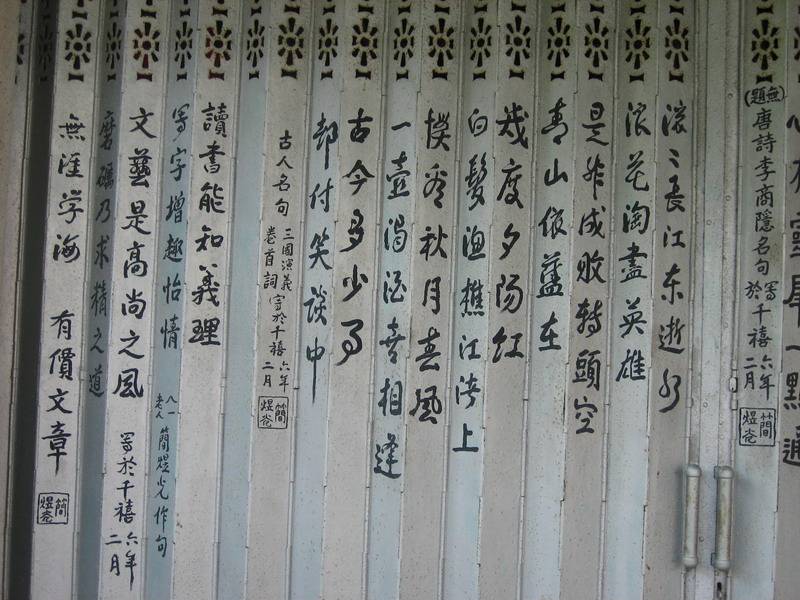 心有靈犀一點通
(無題)唐詩李商隱名句 寫於千禧六年二月 簡煜
滾〻長江东逝水
浪花淘盡英雄
是非成敗轉頭空
青山依舊在
幾度夕陽紅
白髮漁樵江渚上
慣看秋月春風
一壺濁酒喜相逢
古今多少事
都付笑談中
古人名句 三國演義卷首詞 寫於千禧六年二月 簡煜
讀書能知義理
寫字增趣怡情 八一老人 簡煜光作句
文藝是高尚之风 寫於千禧六年二月
磨礪乃求精之道
無涯学海 有價文章 簡煜